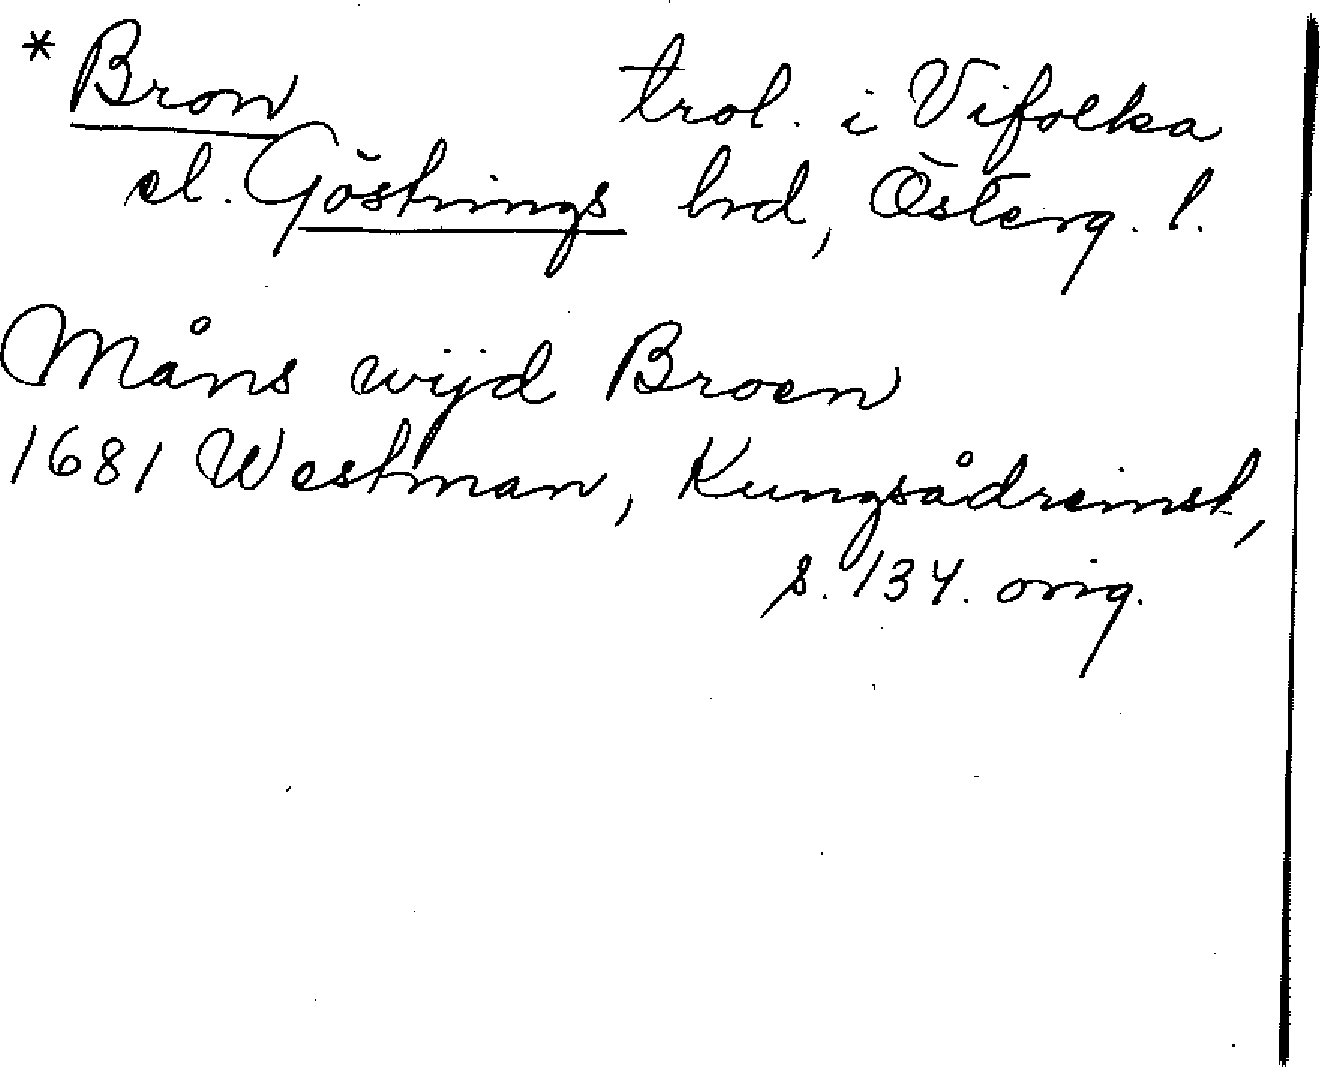 * Bron trol. i Vifolka
el. Göstrings hrd, Österg. l.
Måns wijd Broen
1681 Westman, Kungsådreinst,
s. 134. orig.